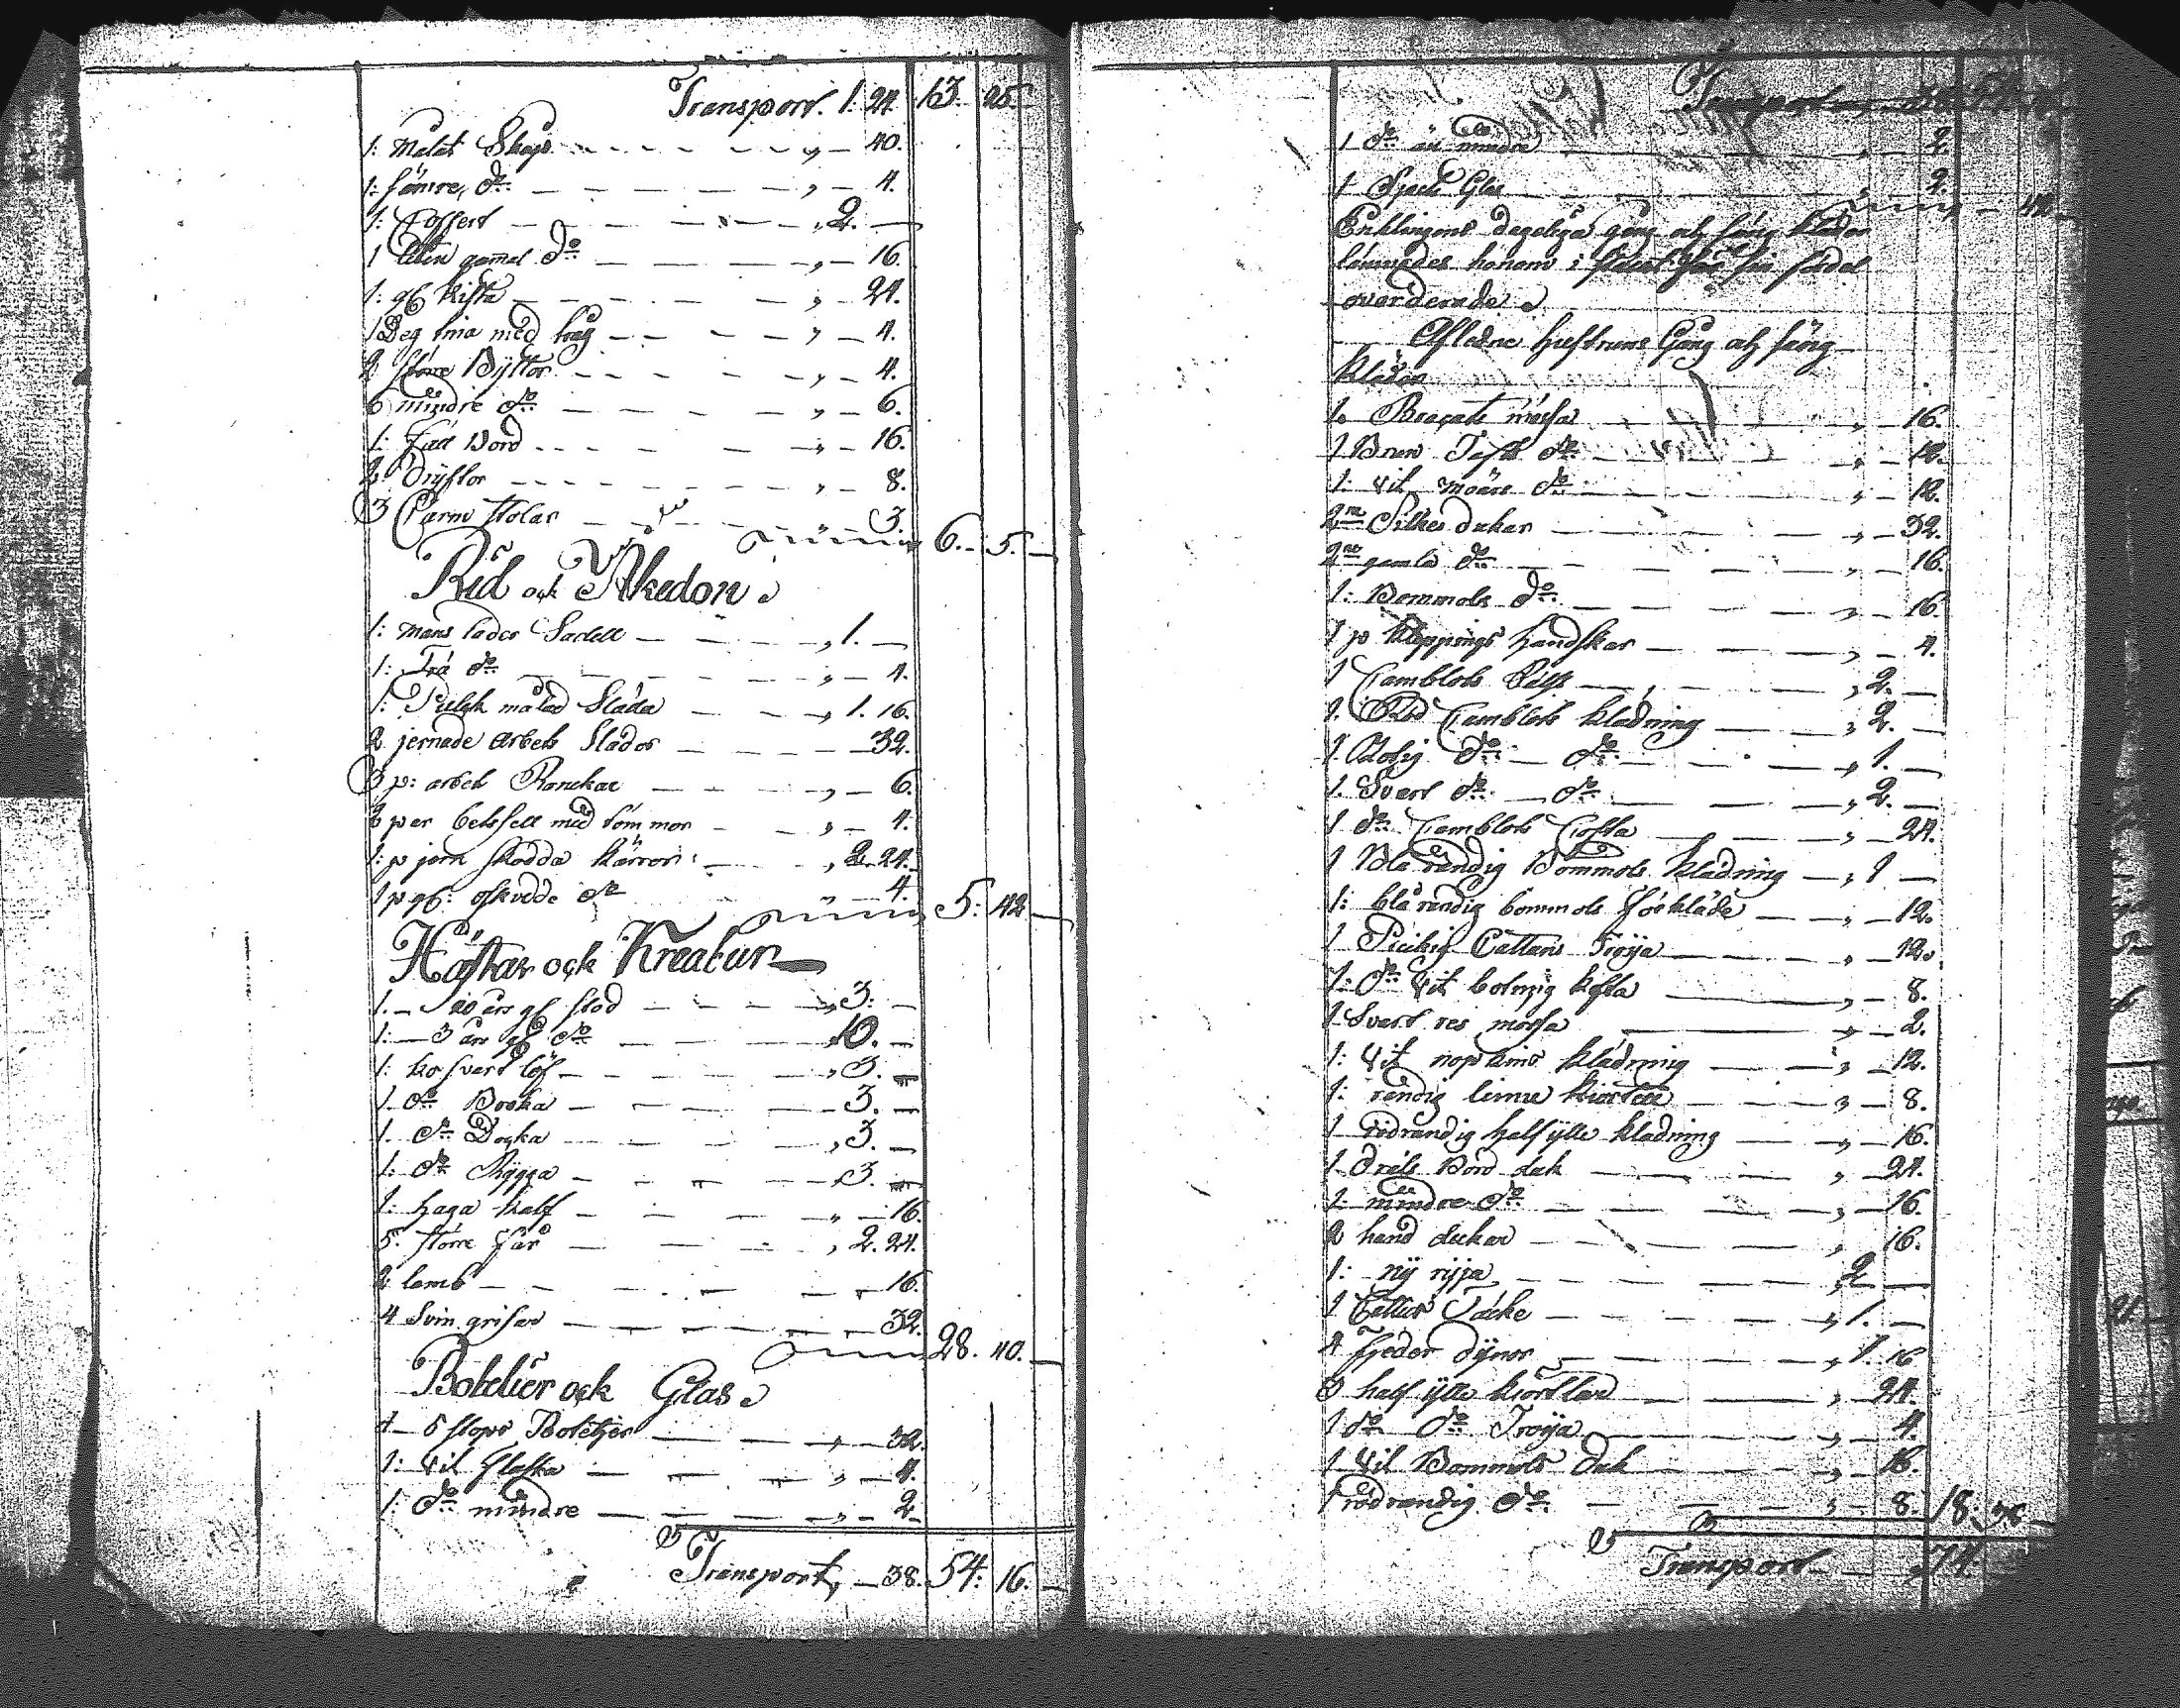 Transport. 1. 24. 13. 25.
1: Målat Skåp „ 40.
1: sämre, d:o „ 4.
1: Coffert „ 2. —
1 liten gamal d:o „ 16.
1: gl Kista „ 24.
1 Deg tina med tråg „ 4.
2 större Byttor „ 4.
6 mindre d:o „ 6.
1: fäll Bord „ 16.
2 Dryftor „ 8.
3 Carm stolar 3. 6. 5. —
Rid ock Åkedon
1: Mans läder Sadell „ 1. —
1: Trä d:o „ 4.
1: målad Släda „ 1. 16.
2 jernade arbets Slädor 32.
3 p: arbets Ranckar „ 6.
2 par betsell med tömmar „ 4.
1: p jern skodda kärror „ 2. 24.
1 p gl: oskodde d:o 4. 5: 42 —
Hästar ock Kreatur
1. 20 års gl stod „ 3: —
1: 3 års gl d:o „ 10. —
1: ko svart löf „ 3. —
1 d:o Broka 3. —
1. d:o Docka „ 3. —
1: d:o Rygga „ 3. —
1: kalf „ 16.
5. större får „ 2. 24.
2 lamb 16
4 Svin grisar 32. 28. 40. —
Botelier ock Glas
4 5 stops Botelyer „ 32.
1: vit Flaska „ 4.
1: d:o mindre „ 2
Transport, 38. 54: 16. —
Transport
1 d:o än mindre „ 2.
1 Glas „ 2.
Enklingens dageliga gång och säng kläder
lämnades honom i för sin fördel
ovärderade
Afledne hustruns Gång och säng
kläder
1. Brocats mössa „ 16.
1 Brun d:o „ 12.
1: vit d:o „ 12.
2:ne Silkes dukar „ 32.
2:ne gamla d:o „ 16.
1: Bommols d:o „ 16.
1 p klippings handskar „ 4.
1 Camblots „ 2. —
1. Camblots klädning „ 2. —
1. d:o d:o „ 1. —
1. Svart d:o d:o „ 2. —
1 d:o Camblots Cofta „ 24.
1 Blå randig Bommols klädning „ 1 —
1: blå randig bommols förkläde „ 12.
1 Cattuns Tröya „ 12.
1: d:o vit kofta „ 8.
1 Svart res mössa „ 2.
1: vit klädning „ 12.
1: randig linne kiortel „ 8.
1 rödrandig half ylle klädning „ 16.
1 Dräls Bord duk „ 24.
1: mindre d:o „ 16.
2 hand dukar „ 16.
1: ny rya „ 2 —
1 Cattuns Täcke „ 1. —
4 Fjeder dynor „ 1. 16
3 half ylle kiortlar „ 24.
1 d:o d:o Tröya „ 4.
1 vit Bommols Duk „ 16.
1 rödrandig d:o „ 8. 18: 38
Transport 74.